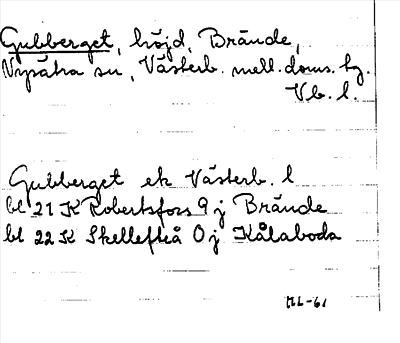 Gubberget, höjd, Brände,
Nysätra sn, Västerb. mell. doms. hg.
Vb. l.
Gubberget ek Västerb. l
bl 21 K Robertsfors 9 j Brände
bl 22 K Skellefteå 0 j Kålaboda
-61